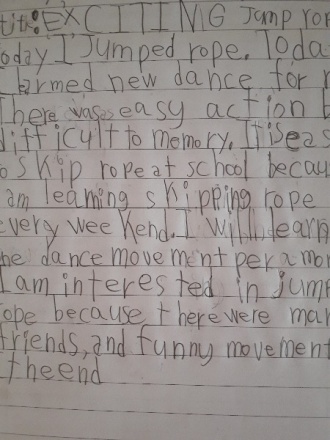 title: EXCITING Jump rop
oday I Jumped rope. Toda
learned new dance for r
There was easy action b
difficult to memory. It is eas
o skip rope at school becau
am learning skipping rope
every weekend. I will learn
ne dance movement per a mon
I am interested in jump
ope because there were man
friends, and funny movement
the end